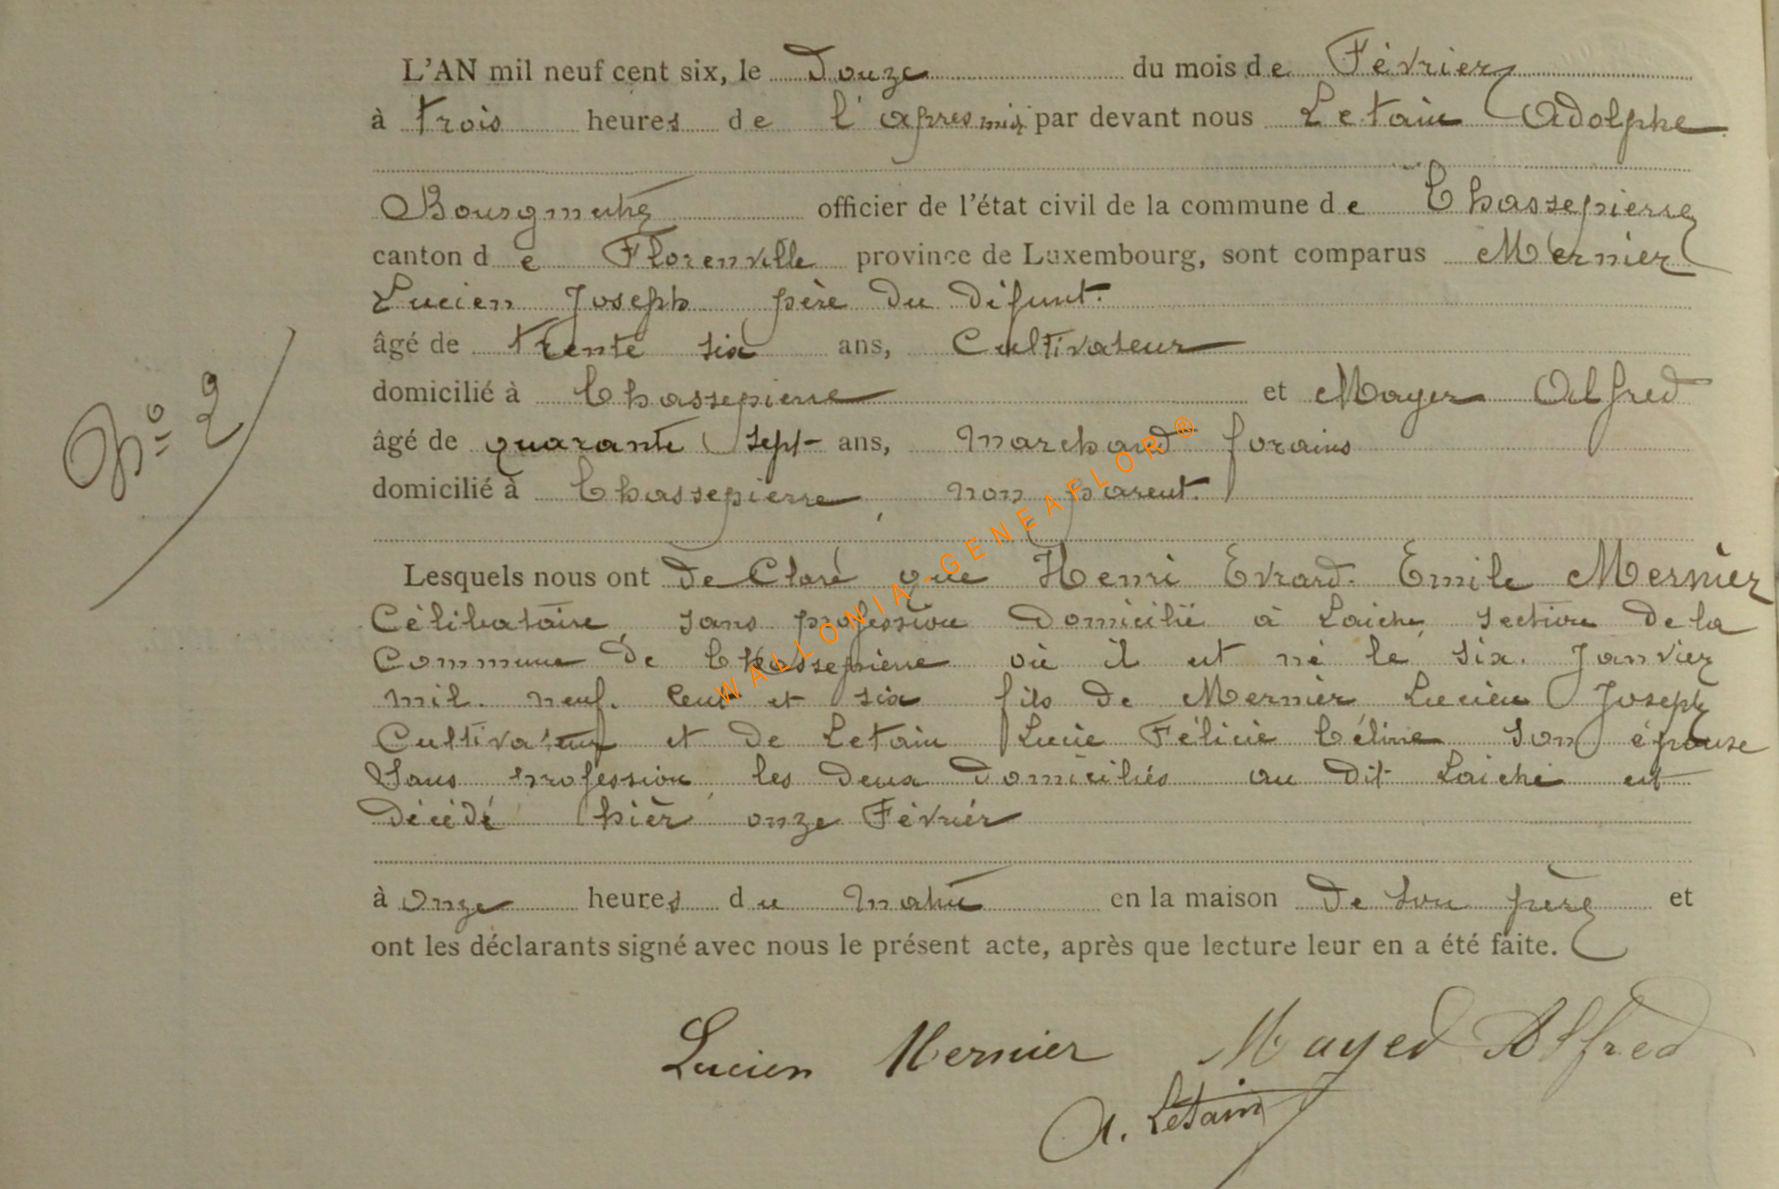 L'AN mil neuf cent six, le Douze du mois de Février
à trois heures de l'apresmidi par devant nous Letain Adolphe
Bourgmestre officier de l'état civil de la commune de Chassepierre
canton de Florenville province de Luxembourg, sont comparus Mernier
Lucien Joseph père du défunt.
âgé de trente six ans, Cultivateur
domicilié à Chassepierre et Mayer Alfred
âgé de quarante sept ans, Marchand forains
domicilié à Chassepierre, non parent.
N° 2
Lesquels nous ont déclaré que Henri Evrard Emile Mernier
Célibataire, sans profession domicilié à Laiche, section de la
Commune de Chassepierre où il est né le six Janvier
mil neuf cent et six fils de Mernier Lucien Joseph
Cultivateur et de Letain Lucie Félicie Céline son épouse
Sans profession, les deux domiciliés au dit Laiche est
décédé hier onze Février
à onze heures du Matin en la maison de son père et
ont les déclarants signé avec nous le présent acte, après que lecture leur en a été faite.
Lucien Mernier Mayer Alfred
A. Letain
WALLONIA-GENEAFLOR ®